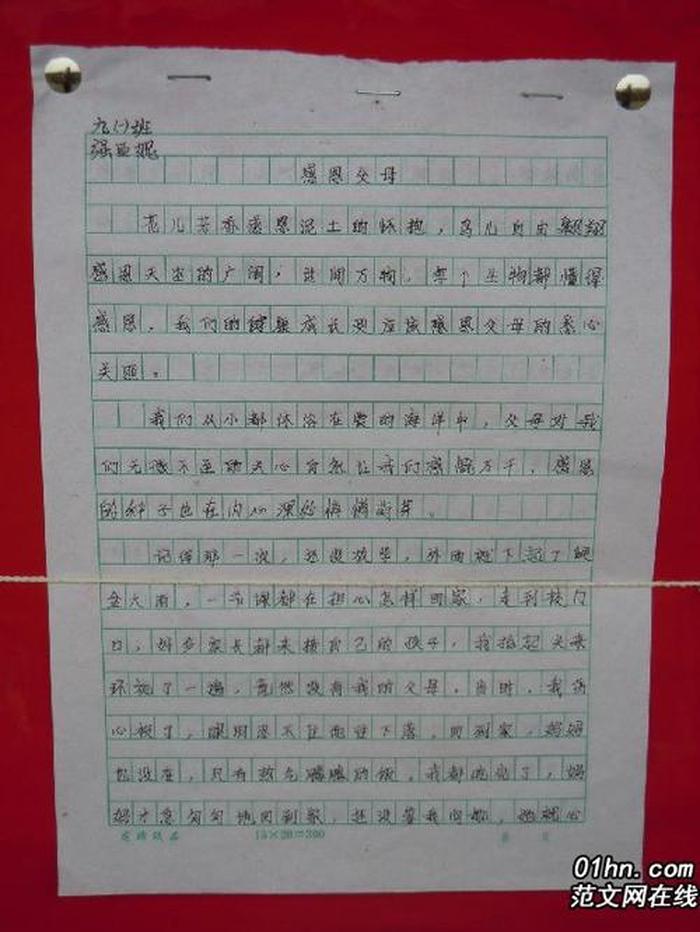 九(一)班
强亚妮
感恩父母
花儿芳香感恩泥土的怀抱，鸟儿自由翱翔
感恩天空的广阔，世间万物，每个生物都懂得
感恩，我们的健康成长更应该感恩父母的悉心
关照。
我们从小都沐浴在爱的海洋中，父母对我
们无微不至的关心自然让我们感慨万千，感恩
的种子也在内心深处悄悄萌芽。
记得那一次，还没放学，外面就下起了倾
盆大雨，一节课都在担心怎样回家，走到校门
口，好多家长都来接自己的孩子，我抬起头来
环视了一遍，竟然没有我的父母，当时，我伤
心极了，眼泪忍不住地往下落，回到家，妈妈
也没在，只有热气腾腾的饭，我都吃完了，妈
妈才急匆匆地回到家，还没等我问她，她就心
15×20=300
01hn.com
范文网在线